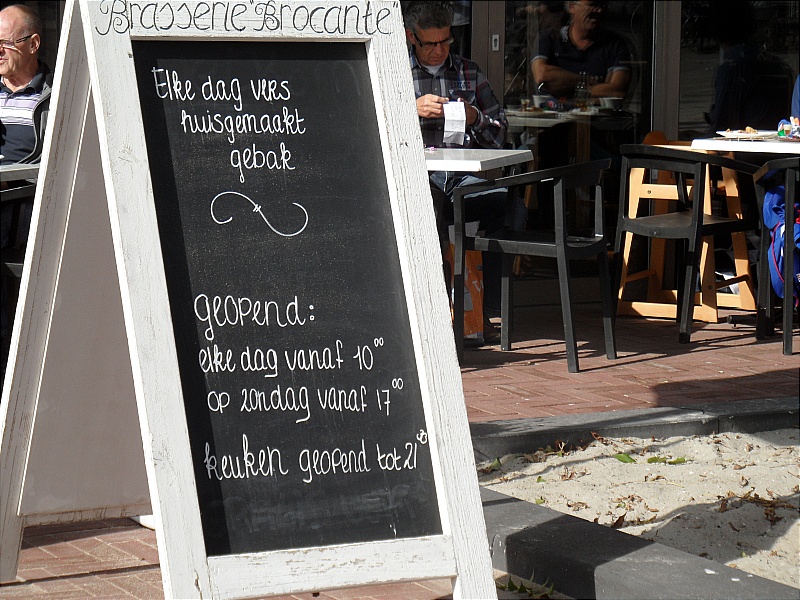 Brasserie "Brocante"
Elke dag vers
huisgemaakt
gebak
geopend:
elke dag vanaf 10⁰⁰
op zondag vanaf 17⁰⁰
keuken geopend tot 21⁰⁰